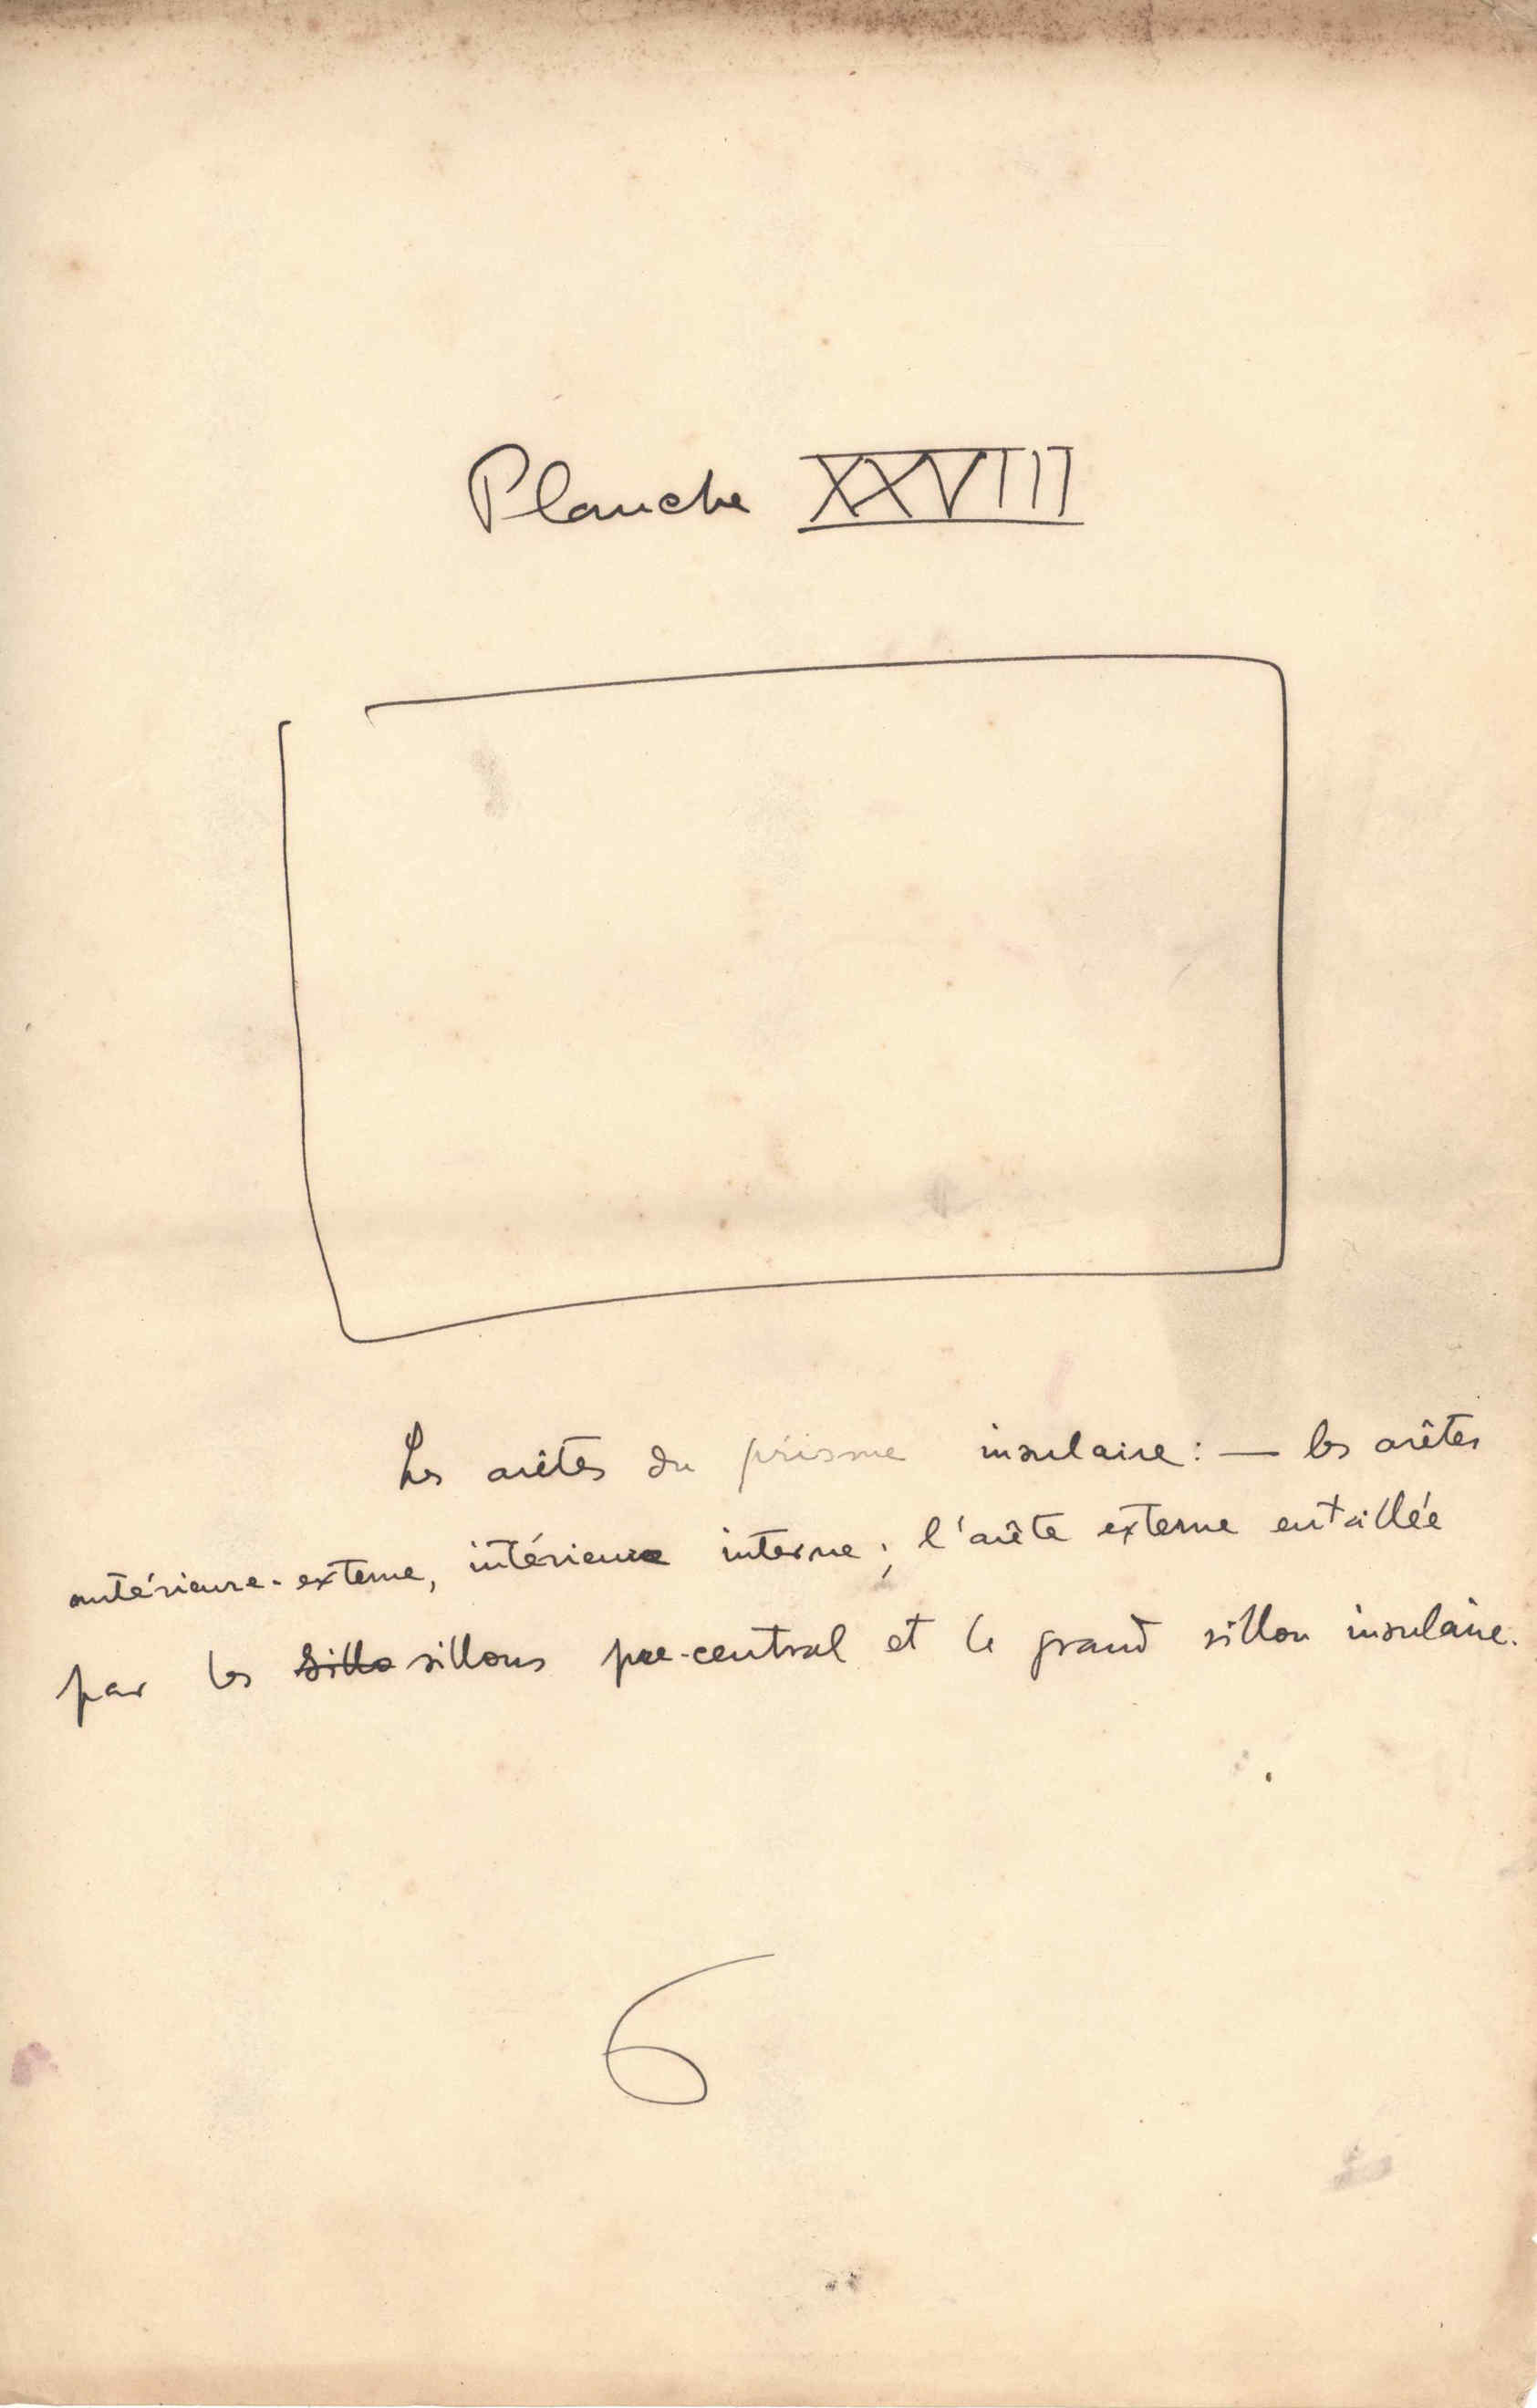 Planche XXVIII
Les arêtes du prisme insulaire : — les arêtes
antérieure-externe, intérieure interne ; l'arête externe entaillée
par les sillo sillons pre-central et le grand sillon insulaire.
6